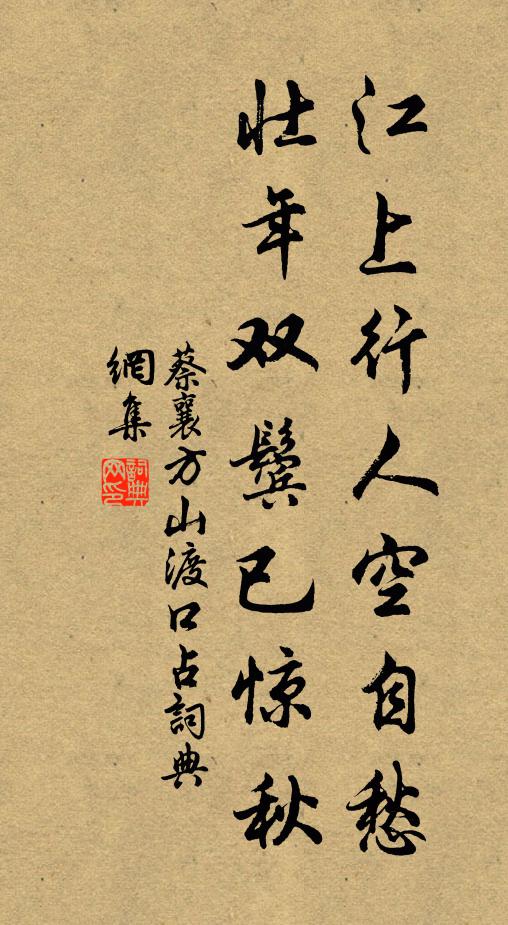 江上行人空自愁
壮年双鬓已惊秋
蔡襄方山渡口占詞典
網集
詞典網印